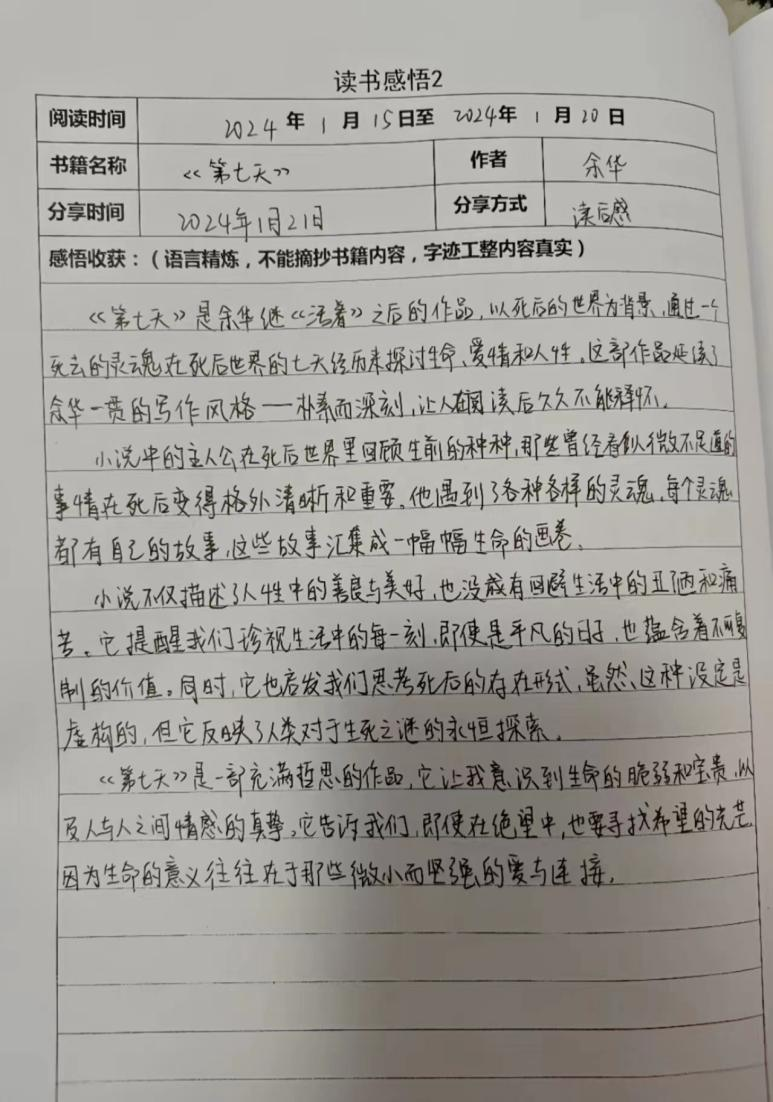 读书感悟2
阅读时间 2024 年 1 月 15 日至 2024 年 1 月 20 日
书籍名称 《第七天》 作者 余华
分享时间 2024年1月21日 分享方式 读后感
感悟收获：（语言精炼，不能摘抄书籍内容，字迹工整内容真实）
《第七天》是余华继《活着》之后的作品，以死后的世界为背景，通过一个
死去的灵魂在死后世界的七天经历来探讨生命、爱情和人性。这部作品延续了
余华一贯的写作风格——朴素而深刻，让人在阅读后久久不能释怀。
小说中的主人公在死后世界里回顾生前的种种，那些曾经看似微不足道的
事情在死后变得格外清晰和重要。他遇到了各种各样的灵魂，每个灵魂
都有自己的故事，这些故事汇集成一幅幅生命的画卷。
小说不仅描述了人性中的善良与美好，也没有回避生活中的丑陋和痛
苦。它提醒我们珍视生活中的每一刻，即使是平凡的日子，也蕴含着不可复
制的价值。同时，它也启发我们思考死后的存在形式，虽然、这种设定是
虚构的，但它反映了人类对于生死之谜的永恒探索。
《第七天》是一部充满哲思的作品，它让我意识到生命的脆弱和宝贵，以
及人与人之间情感的真挚。它告诉我们，即使在绝望中，也要寻找希望的光芒，
因为生命的意义往往在于那些微小而坚强的爱与连接。